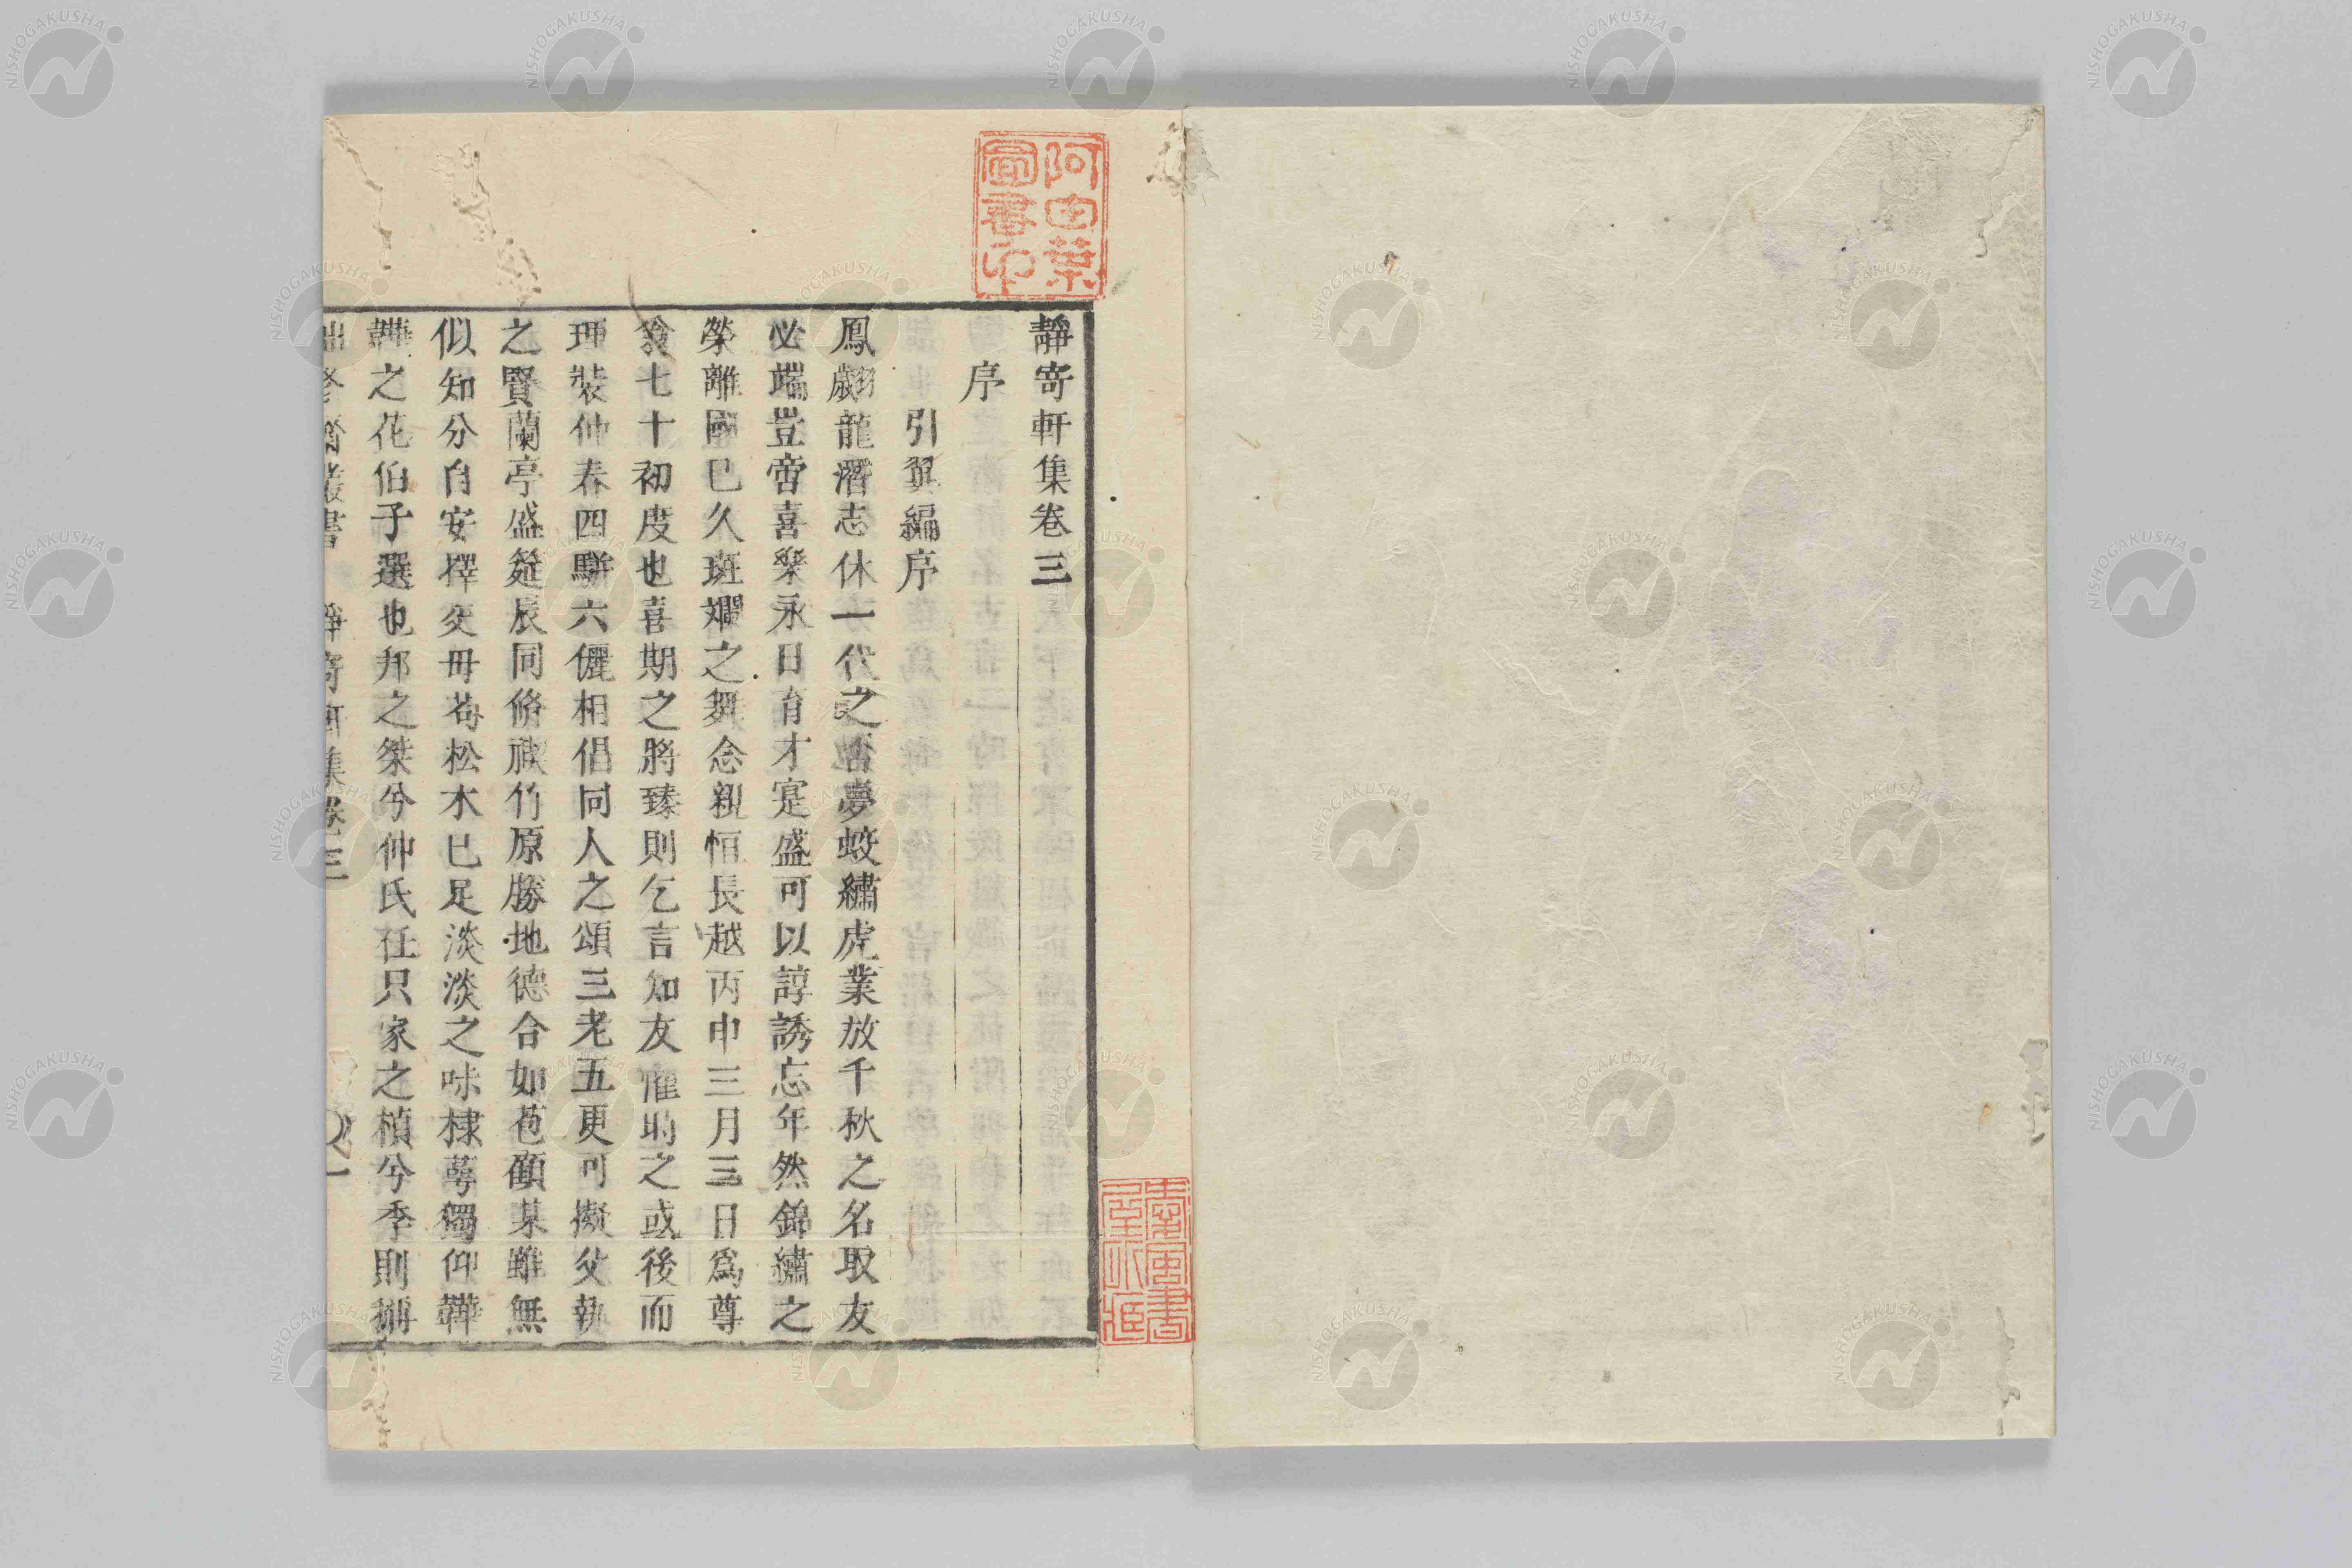 靜寄軒集卷三
序
引翼編序
鳳翽龍潛志休一代之當夢蛟繡虎業放千秋之名取友
必端豈啻喜樂永日育才寔盛可以諄誘忘年然錦繡之
榮離國已久斑斕之舞念親恒長越丙申三月三日爲尊
翁七十初度也喜期之將臻則乞言知友惟時之或後而
理裝仲春四駢六儷相倡同人之頌三老五更可擬父執
之賢蘭亭盛筵辰同脩禊竹原勝地德合如苞顧某雖無
似知分自安擇交毋苟松木已足淡淡之味棣萼獨仰韡
韡之花伯子選也邦之桀兮仲氏任只家之楨兮季則稱
拙修齋叢書 靜寄軒集卷三 一
阿由葉
圖書印
NISHOGAKUSHA